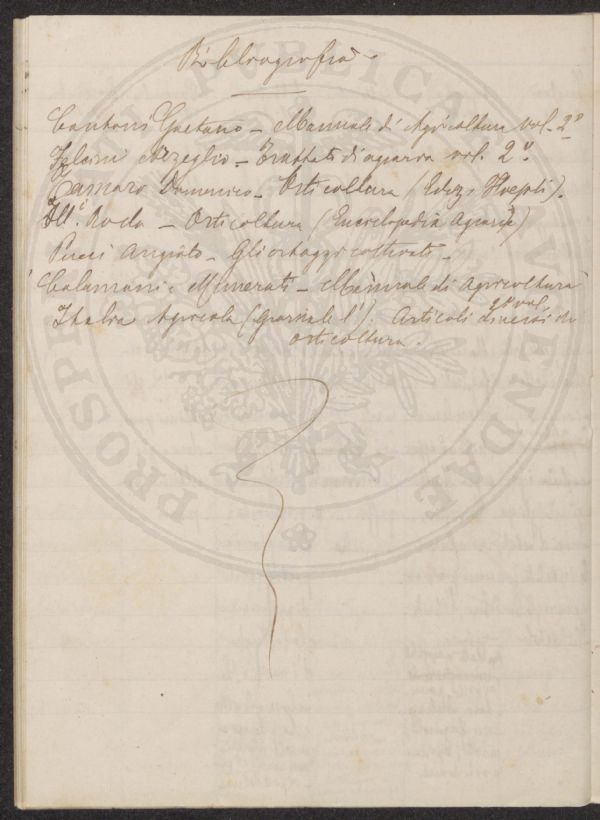 Bibliografia
Cantoni Gaetano - Manuale di Agricoltura vol. 2º
Azzeglio - Trattati di agraria vol. 2º.
Tamaro Domenico - Orticoltura (Ediz. Hoepli).
Ill.i Roda - Orticoltura (Enciclopedia Agraria)
Pucci Angiolo - Gli ortaggi coltivati -
Calamani e Munerati - Manuale di Agricoltura
2º vol.
Italia Agricola (Giornale l'). Articoli diversi di
orticoltura.
PROSPERITATI PUBLICAE AUVENDAE